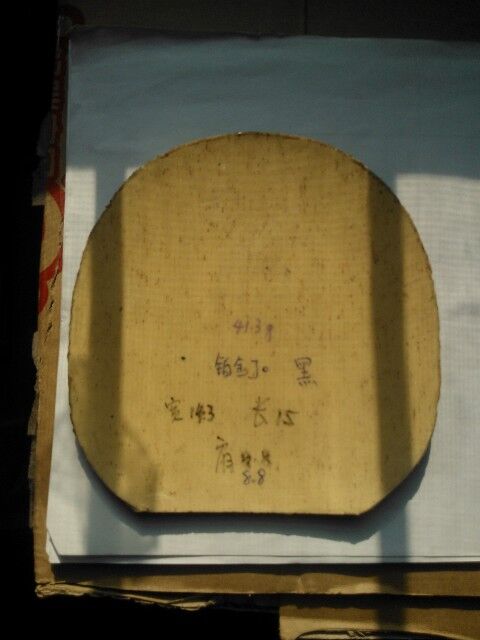 41.3g
铂金J。 黑
宽143 长15
肩
8.8